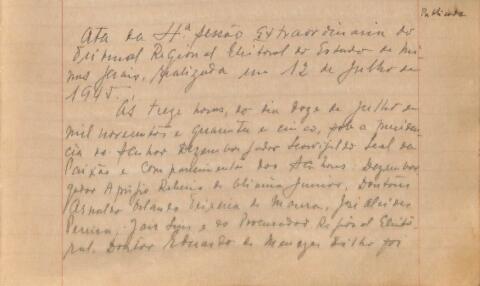 Publicada
Ata da 4ª sessão Extraordinaria do
Tribunal Regional Eleitoral do Estado de Mi-
nas Gerais, realizada em 12 de Julho de
1945.
Ás treze horas, do dia doze de Julho de
mil novecentos e quarenta e cinco, sob a presiden-
cia do Senhor Dezembargador Leal da
Paixão e Comparecimento dos Senhores Dezembar-
gador Aprigio Ribeiro de Oliveira Junior, Doutores
Arnaldo Teixeira de Moura, José Alcides
Pereira, e do Procurador Regional Eleito-
ral, Doutor Eduardo de Menezes Filho foi